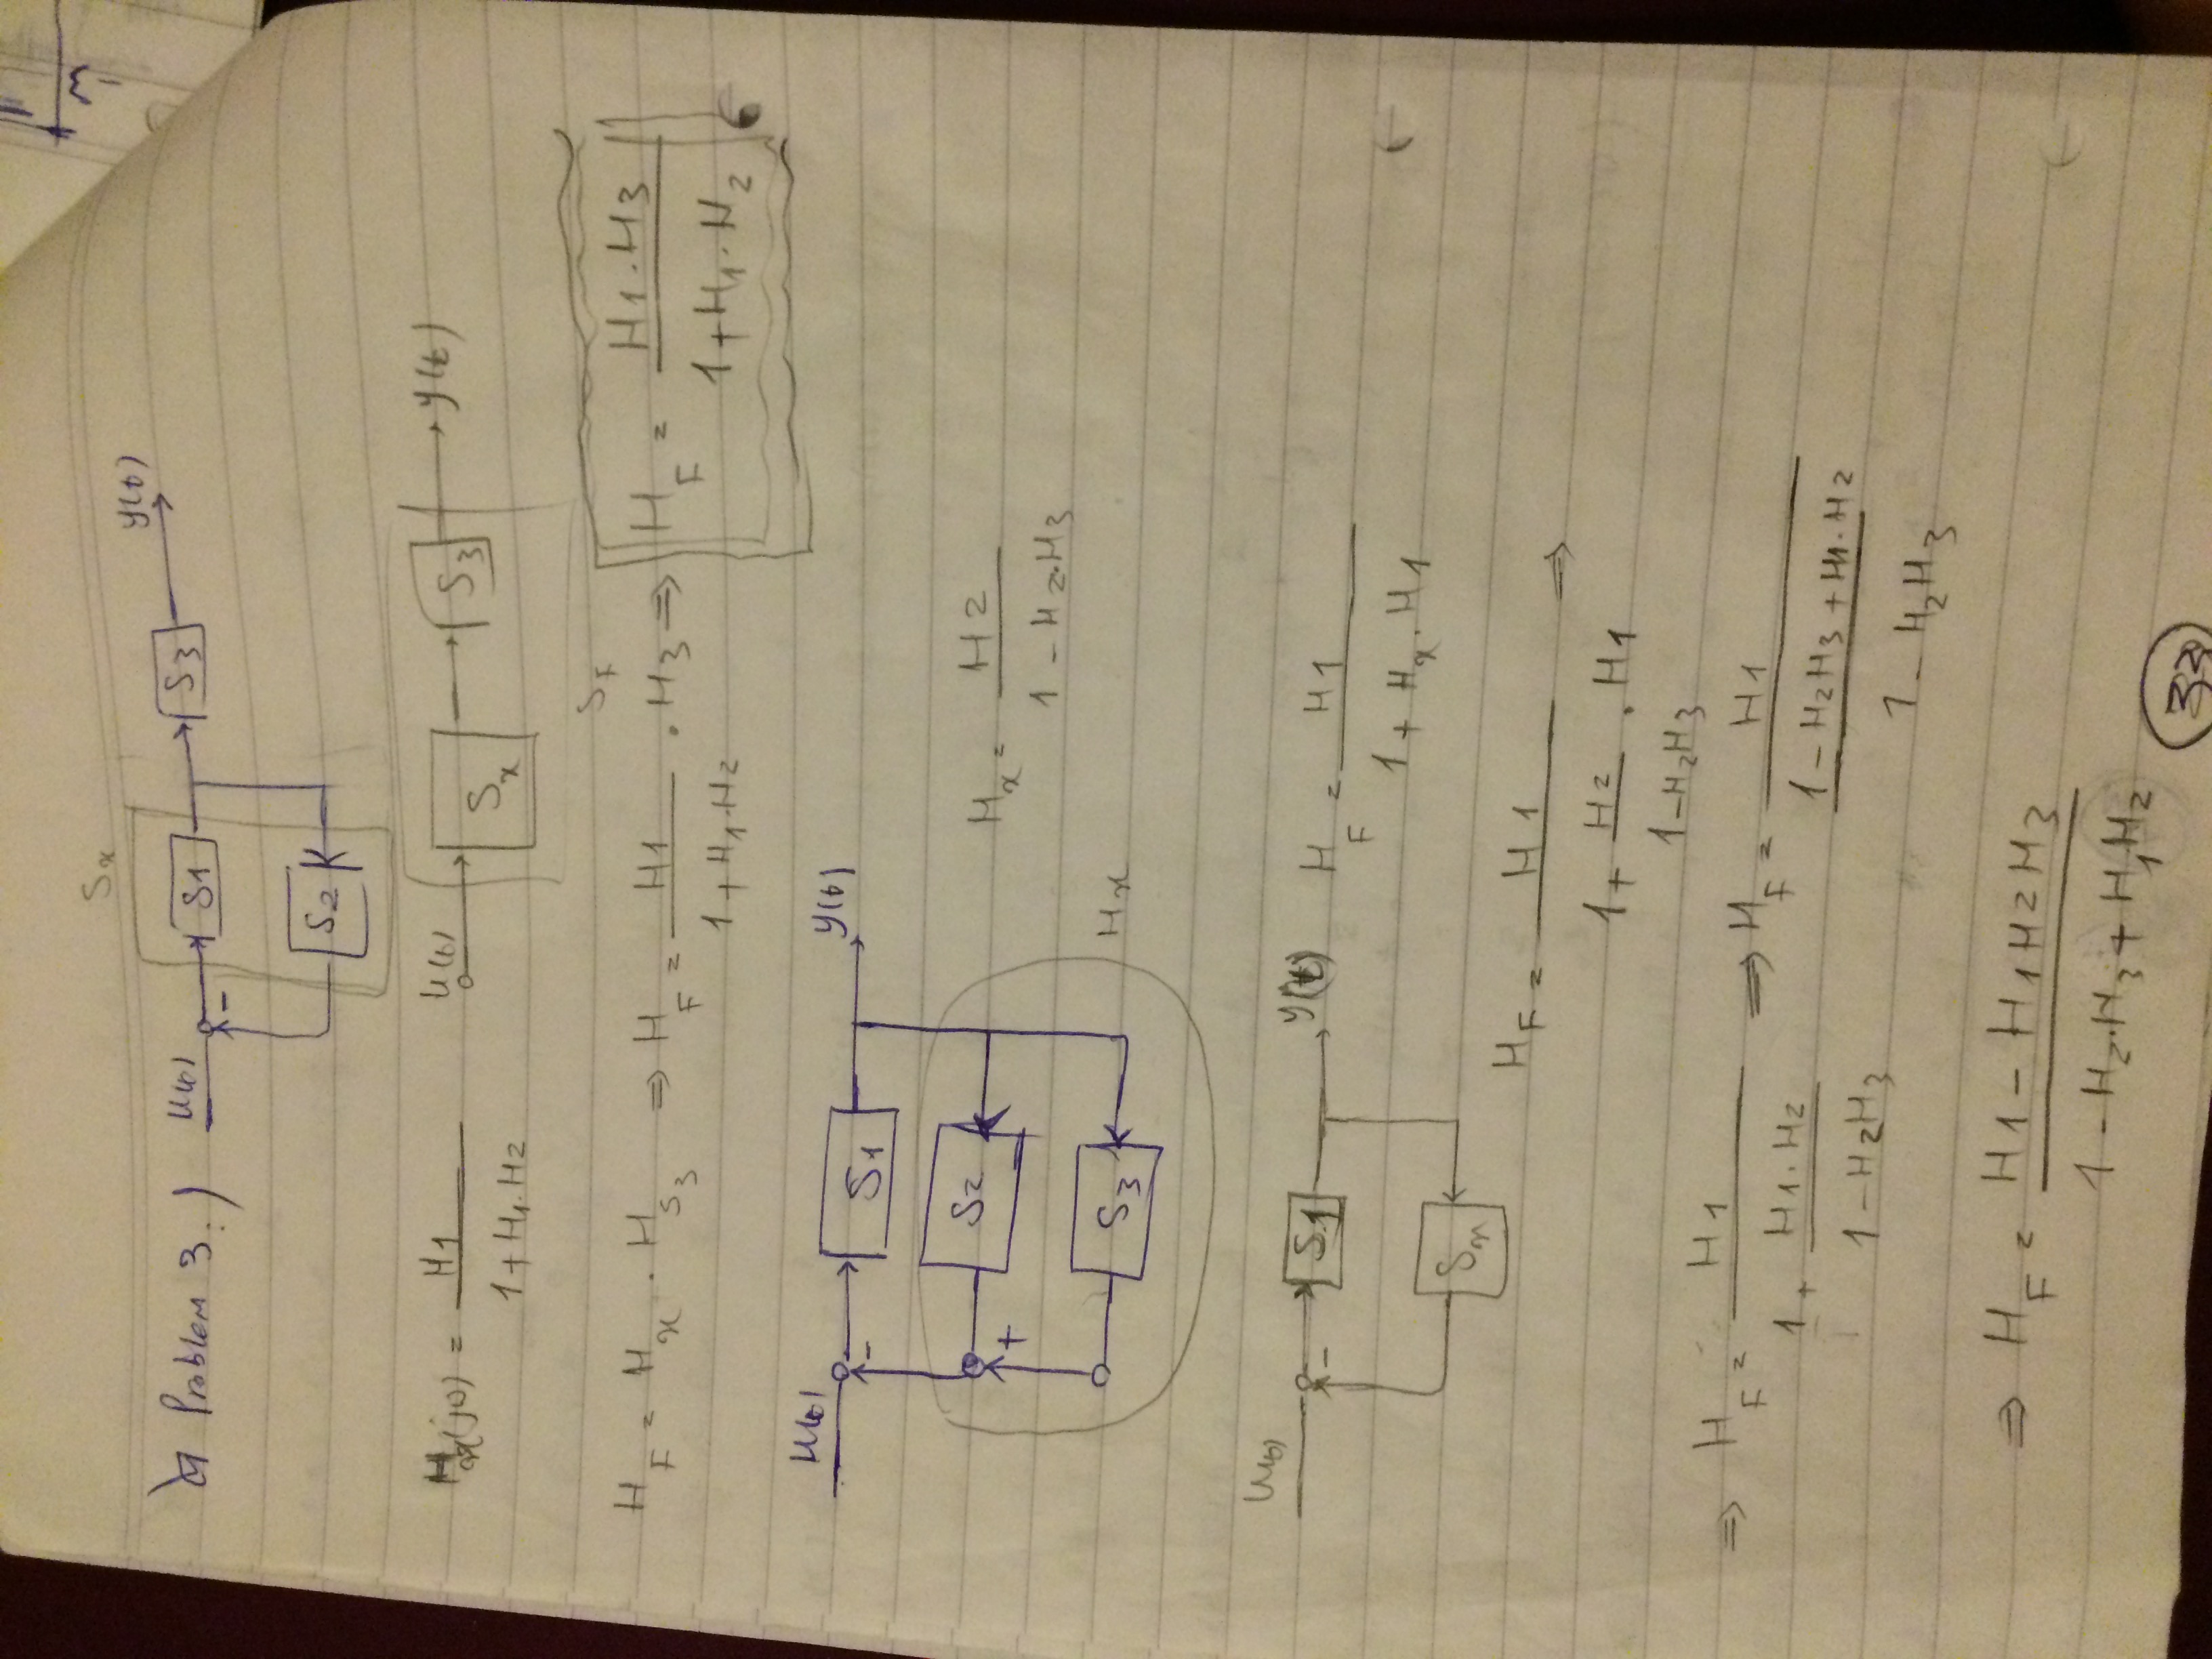 Sx
Problem 3.) u(t) - S1 S3 y(t)
S2
Hx(jω) = H1 / 1+H1.H2 u(t) Sx S3 y(t)
SF
HF = Hx . HS3 ⇒ HF = H1 / 1+H1.H2 . H3 ⇒ HF = H1.H3 / 1+H1.H2
u(t) - S1 y(t)
S2
+
Hx = H2 / 1-H2.H3
S3 Hx
u(t) - S1 y(t) HF = H1 / 1+Hx.H1
Sx
HF = H1 / 1+ H2 / 1-H2H3 . H1 ⇒
⇒ HF = H1 / 1+ H1.H2 / 1-H2H3 ⇒ HF = H1 / 1-H2H3+H1.H2 / 1-H2H3
⇒ HF = H1-H1H2H3 / 1-H2.H3+H1H2
33